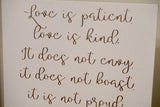 Love is patient
Love is kind.
It does not envy
it does not boast
it is not proud.